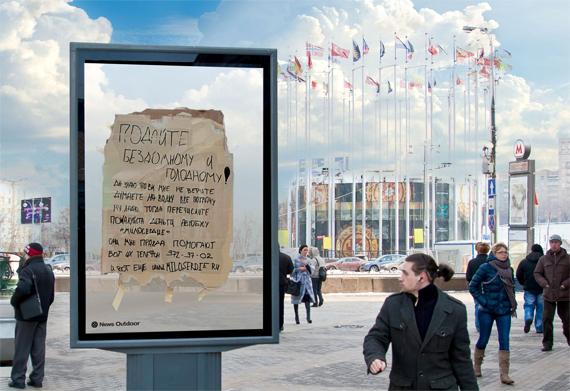 ПОДАЙТЕ
БЕЗДОМНОМУ И
ГОЛОДНОМУ!
ДА ЗНАЮ ТО ВЫ МНЕ НЕ ВЕРИТЕ
ДУМАЕТЕ НА ВОДКУ ВСЕ
НУ ЛАДНО ТОГДА ПЕРЕЧИСЛИТЕ
ПОЖАЛУЙСТА ДЕНЬГИ АВТОБУСУ
"МИЛОСЕРДИЕ"
ОНИ МНЕ ПРАВДА ПОМОГАЮТ
ВОТ ИХ ТЕЛЕФОН -972-97-02
А ВОТ ЕЩЕ WWW.MILOSERDIE.RU
News Outdoor
М